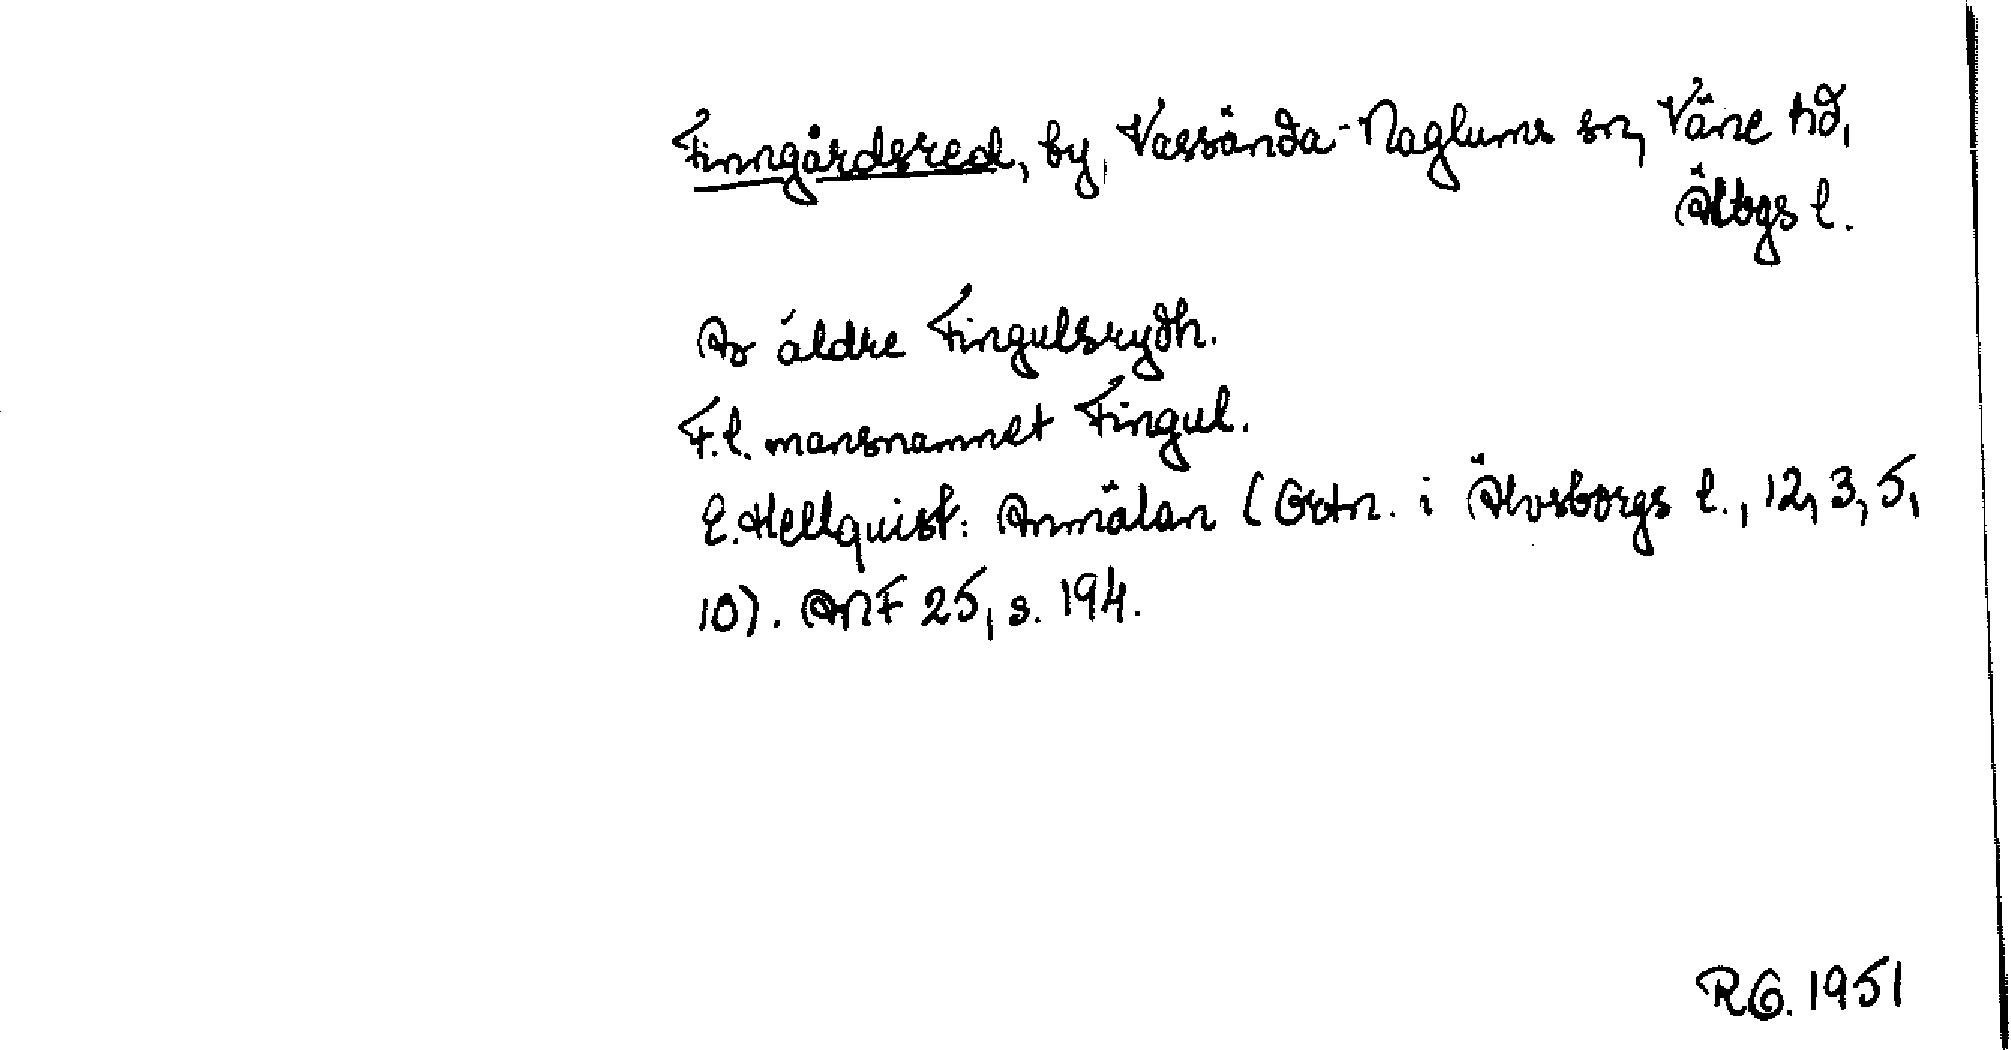 Finngårdsred, by, Vassända-Naglums sn, Väne hd,
Älbgs l.
Av äldre Fingulsrydh.
F.l. mansnamnet Fingul.
E. Hellquist: Anmälan (Ortn. i Älvsborgs l., 12, 3, 5,
10). ANF 25, s. 194.
RG. 1951